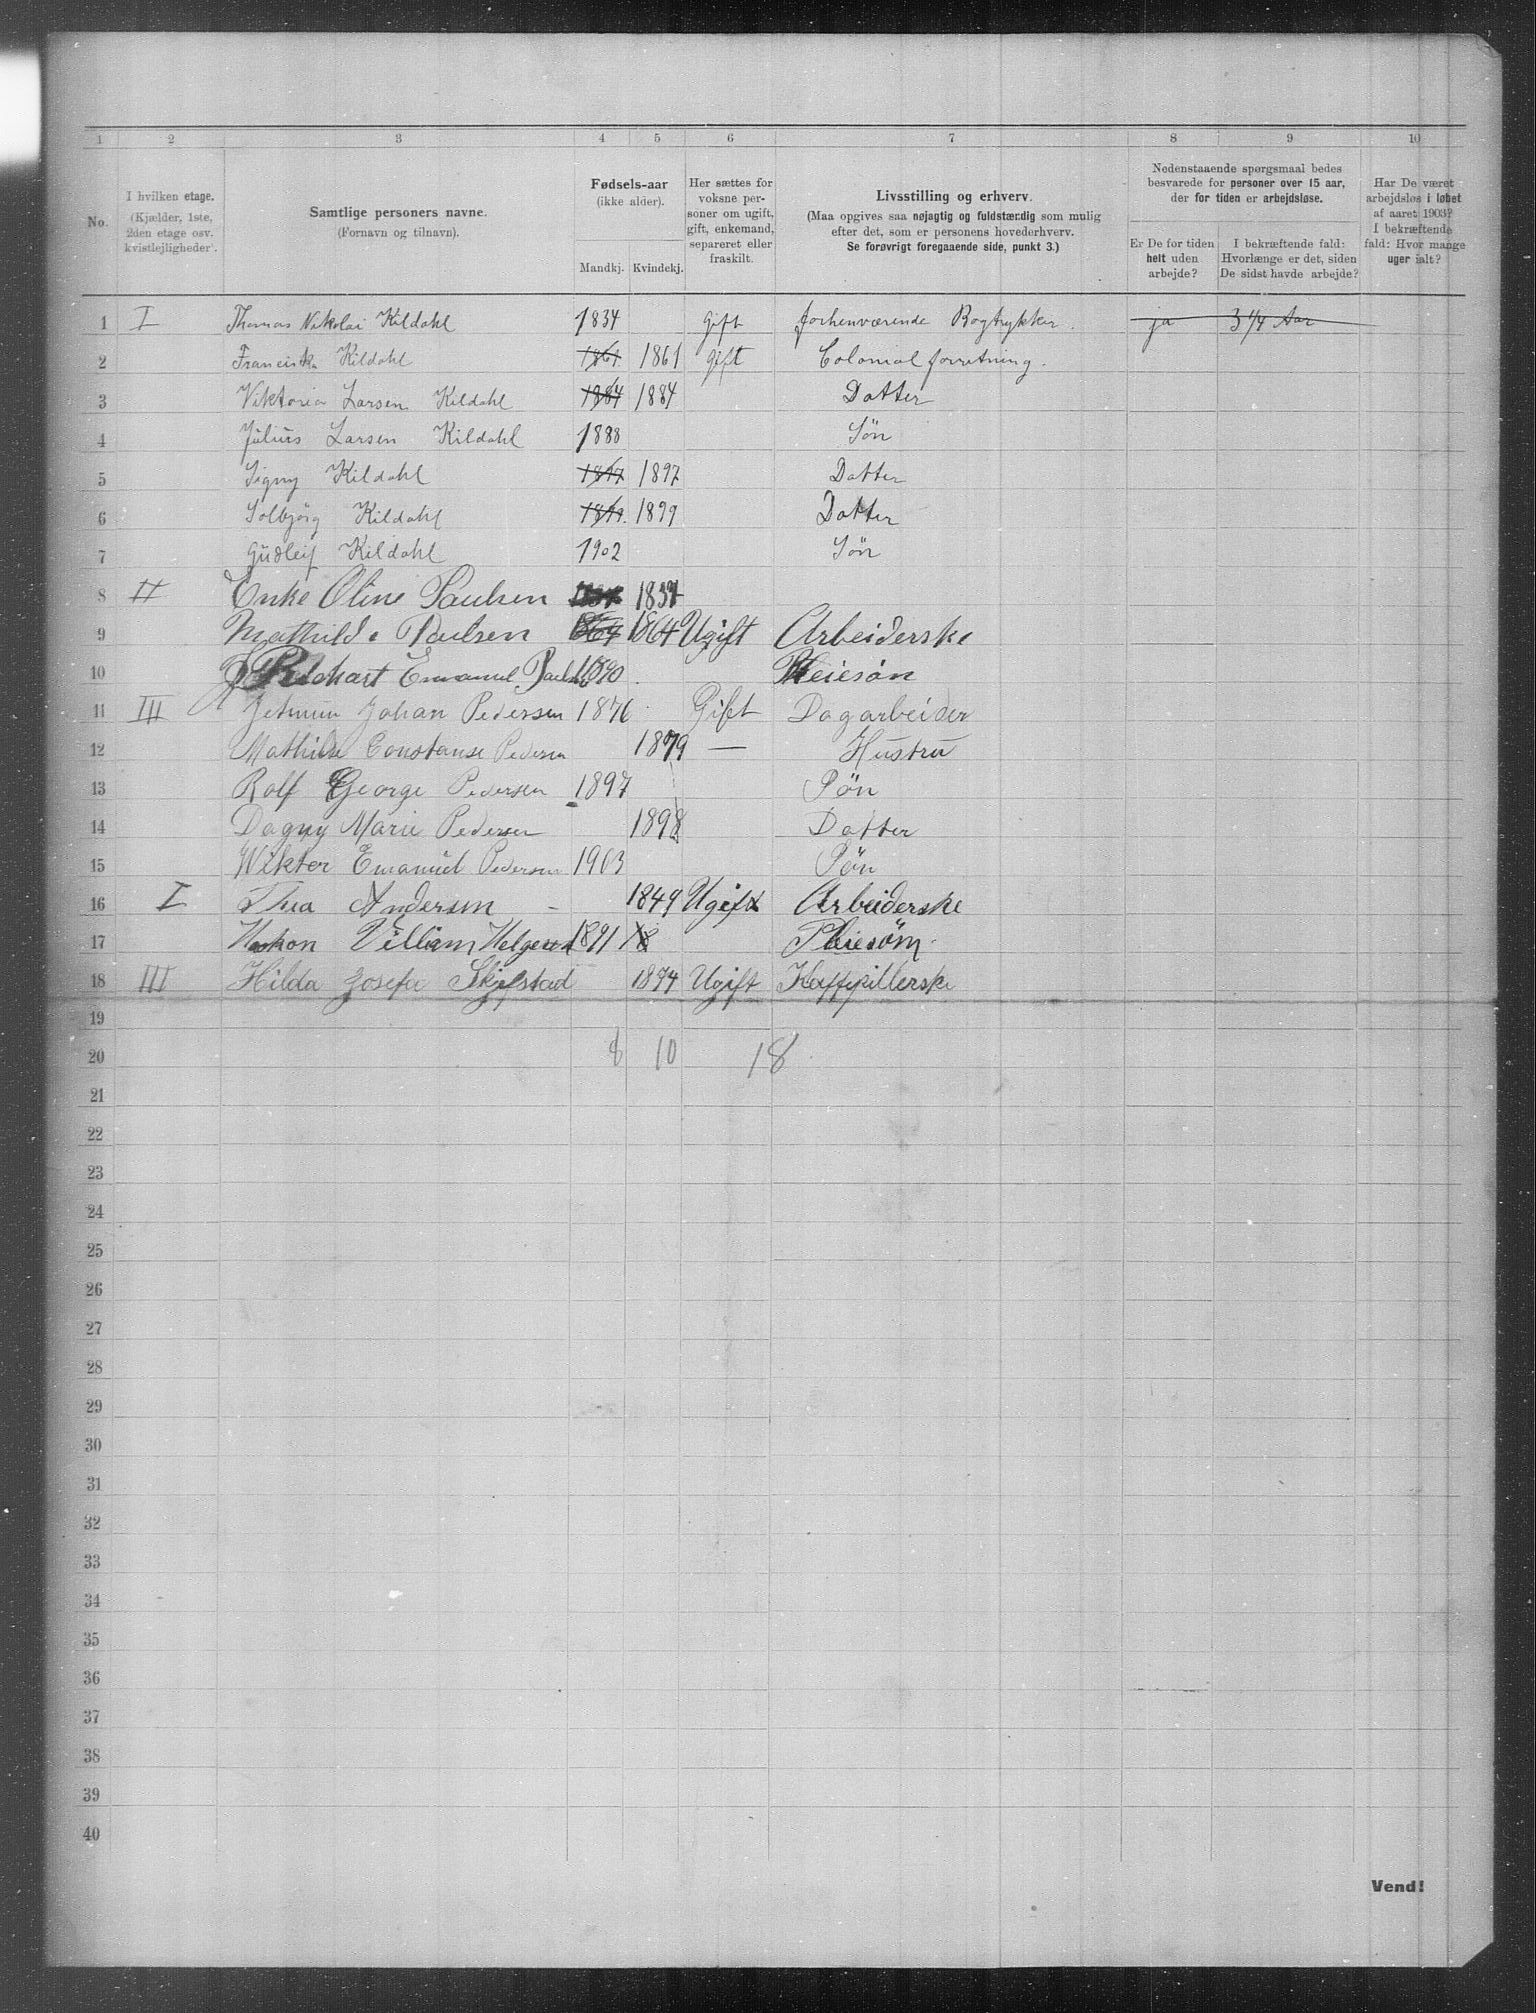 1 2 3 4 5 6 7 8 9 10
No.
I hvilken etage.
(Kjælder, 1ste,
2den etage osv.
kvistlejligheder).
Samtlige personers navne.
(Fornavn og tilnavn).
Fødsels-aar
(ikke alder).
Mandkj. Kvindekj.
Her sættes for
voksne per-
soner om ugift,
gift, enkemand,
separeret eller
fraskilt.
Livsstilling og erhverv.
(Maa opgives saa nøjagtig og fuldstændig som mulig
efter det, som er personens hovederhverv.
Se forøvrigt foregaaende side, punkt 3.)
Nedenstaaende spørgsmaal bedes
besvarede for personer over 15 aar,
der for tiden er arbejdsløse.
Er De for tiden
helt uden
arbejde?
I bekræftende fald:
Hvorlænge er det, siden
De sidst havde arbejde?
Har De været
arbejdsløs i løbet
af aaret 1903?
I bekræftende
fald: Hvor mange
uger ialt?
1 I Thomas Nikolai Kildahl 1834 Gift forhenværende Bogtrykker. ja 3 1/4 Aar
2 Franciska Kildahl 1861 1861 gift Colonialforretning.
3 Viktoria Larsen Kildahl 1884 1884 Datter
4 Julius Larsen Kildahl 1888 Søn
5 Signy Kildahl 1897 1897 Datter
6 Solbjörg Kildahl 1899 1899 Datter
7 Gudleif Kildahl 1902 Søn
8 II Enke Oline Paulsen 1837
9 Mathilde Paulsen 1864 1864 Ugift Arbeiderske
10 Richart Emanuel 1890 Pleiesøn
11 III Johan Pedersen 1876 Gift Dagarbeider
12 Mathilde Constanse Pedersen 1879 — Hustru
13 Rolf George Pedersen 1897 Søn
14 Dagny Marie Pedersen 1898 Datter
15 Wikter Emanuel Pedersen 1903 Søn
16 I Thea Andersen - 1849 Ugift Arbeiderske
17 Haakon Villiam Helgesen 1891 18 Pleiesøn.
18 III Hilda Josefa Skjefstad 1874 Ugift Kaffepillerske
19
20 8 10 18
21
22
23
24
25
26
27
28
29
30
31
32
33
34
35
36
37
38
39
40
Vend!